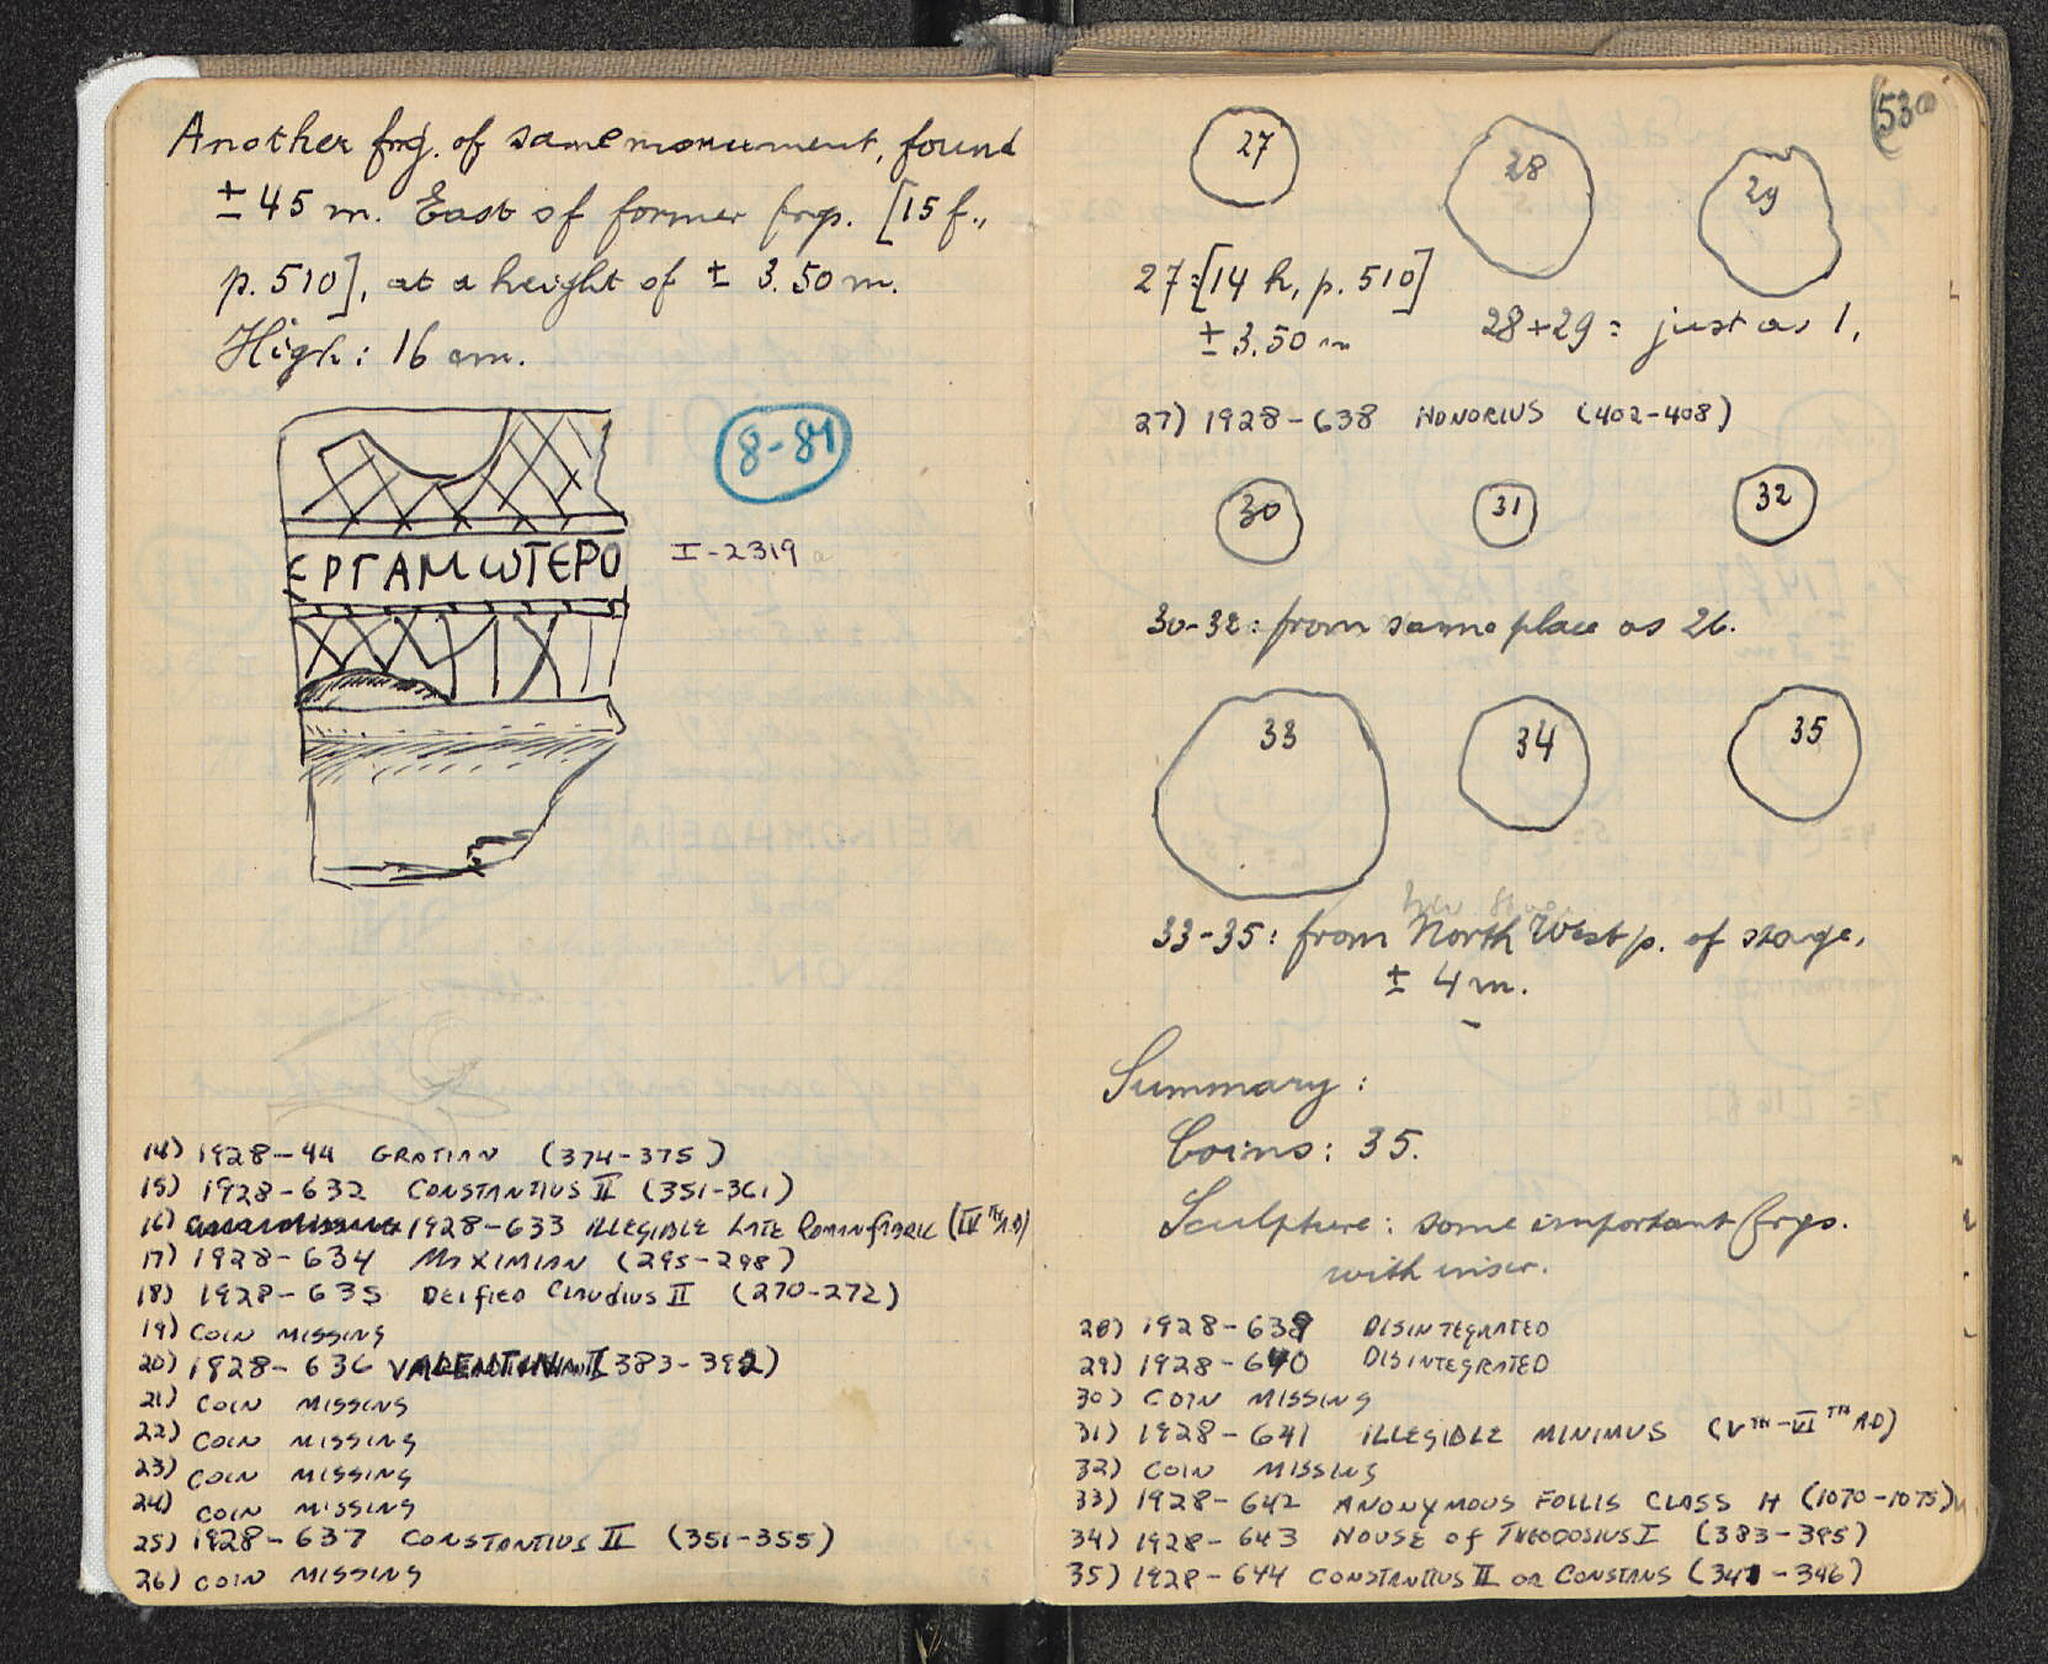 Another frg. of same monument, found
± 45 m. East of former frgs. [15 f.,
p. 510], at a height of ± 3.50 m.
High: 16 cm.
8-81
ΕΡΓΑΜωΤΕΡΟ
I-2319 a
14) 1928-44 GRATIAN (374-375)
15) 1928-632 CONSTANTIUS II (351-361)
16) 1928-633 ILLEGIBLE LATE ROMAN FABRIC (IVTH A.D)
17) 1928-634 MAXIMIAN (295-298)
18) 1928-635 DEIFIED CLAUDIUS II (270-272)
19) COIN MISSING
20) 1928-636 VALENTINIAN II 383-392)
21) COIN MISSING
22) COIN MISSING
23) COIN MISSING
24) COIN MISSING
25) 1928-637 CONSTANTIUS II (351-355)
26) COIN MISSING
530
27
28
29
27=[14 h, p. 510]
± 3.50 m
28+29= just as 1.
27) 1928-638 HONORIUS (402-408)
30
31
32
30-32: from same place as 26.
33
34
35
33-35: from North West p. of stage,
± 4 m.
Summary:
Coins: 35.
Sculpture: some important frgs.
with inscr.
28) 1928-639 DISINTEGRATED
29) 1928-640 DISINTEGRATED
30) COIN MISSING
31) 1928-641 ILLEGIBLE MINIMUS (VTH-VITH A.D)
32) COIN MISSING
33) 1928-642 ANONYMOUS FOLLIS CLASS H (1070-1075)
34) 1928-643 HOUSE OF THEODOSIUS I (383-395)
35) 1928-644 CONSTANTIUS II OR CONSTANS (341-346)